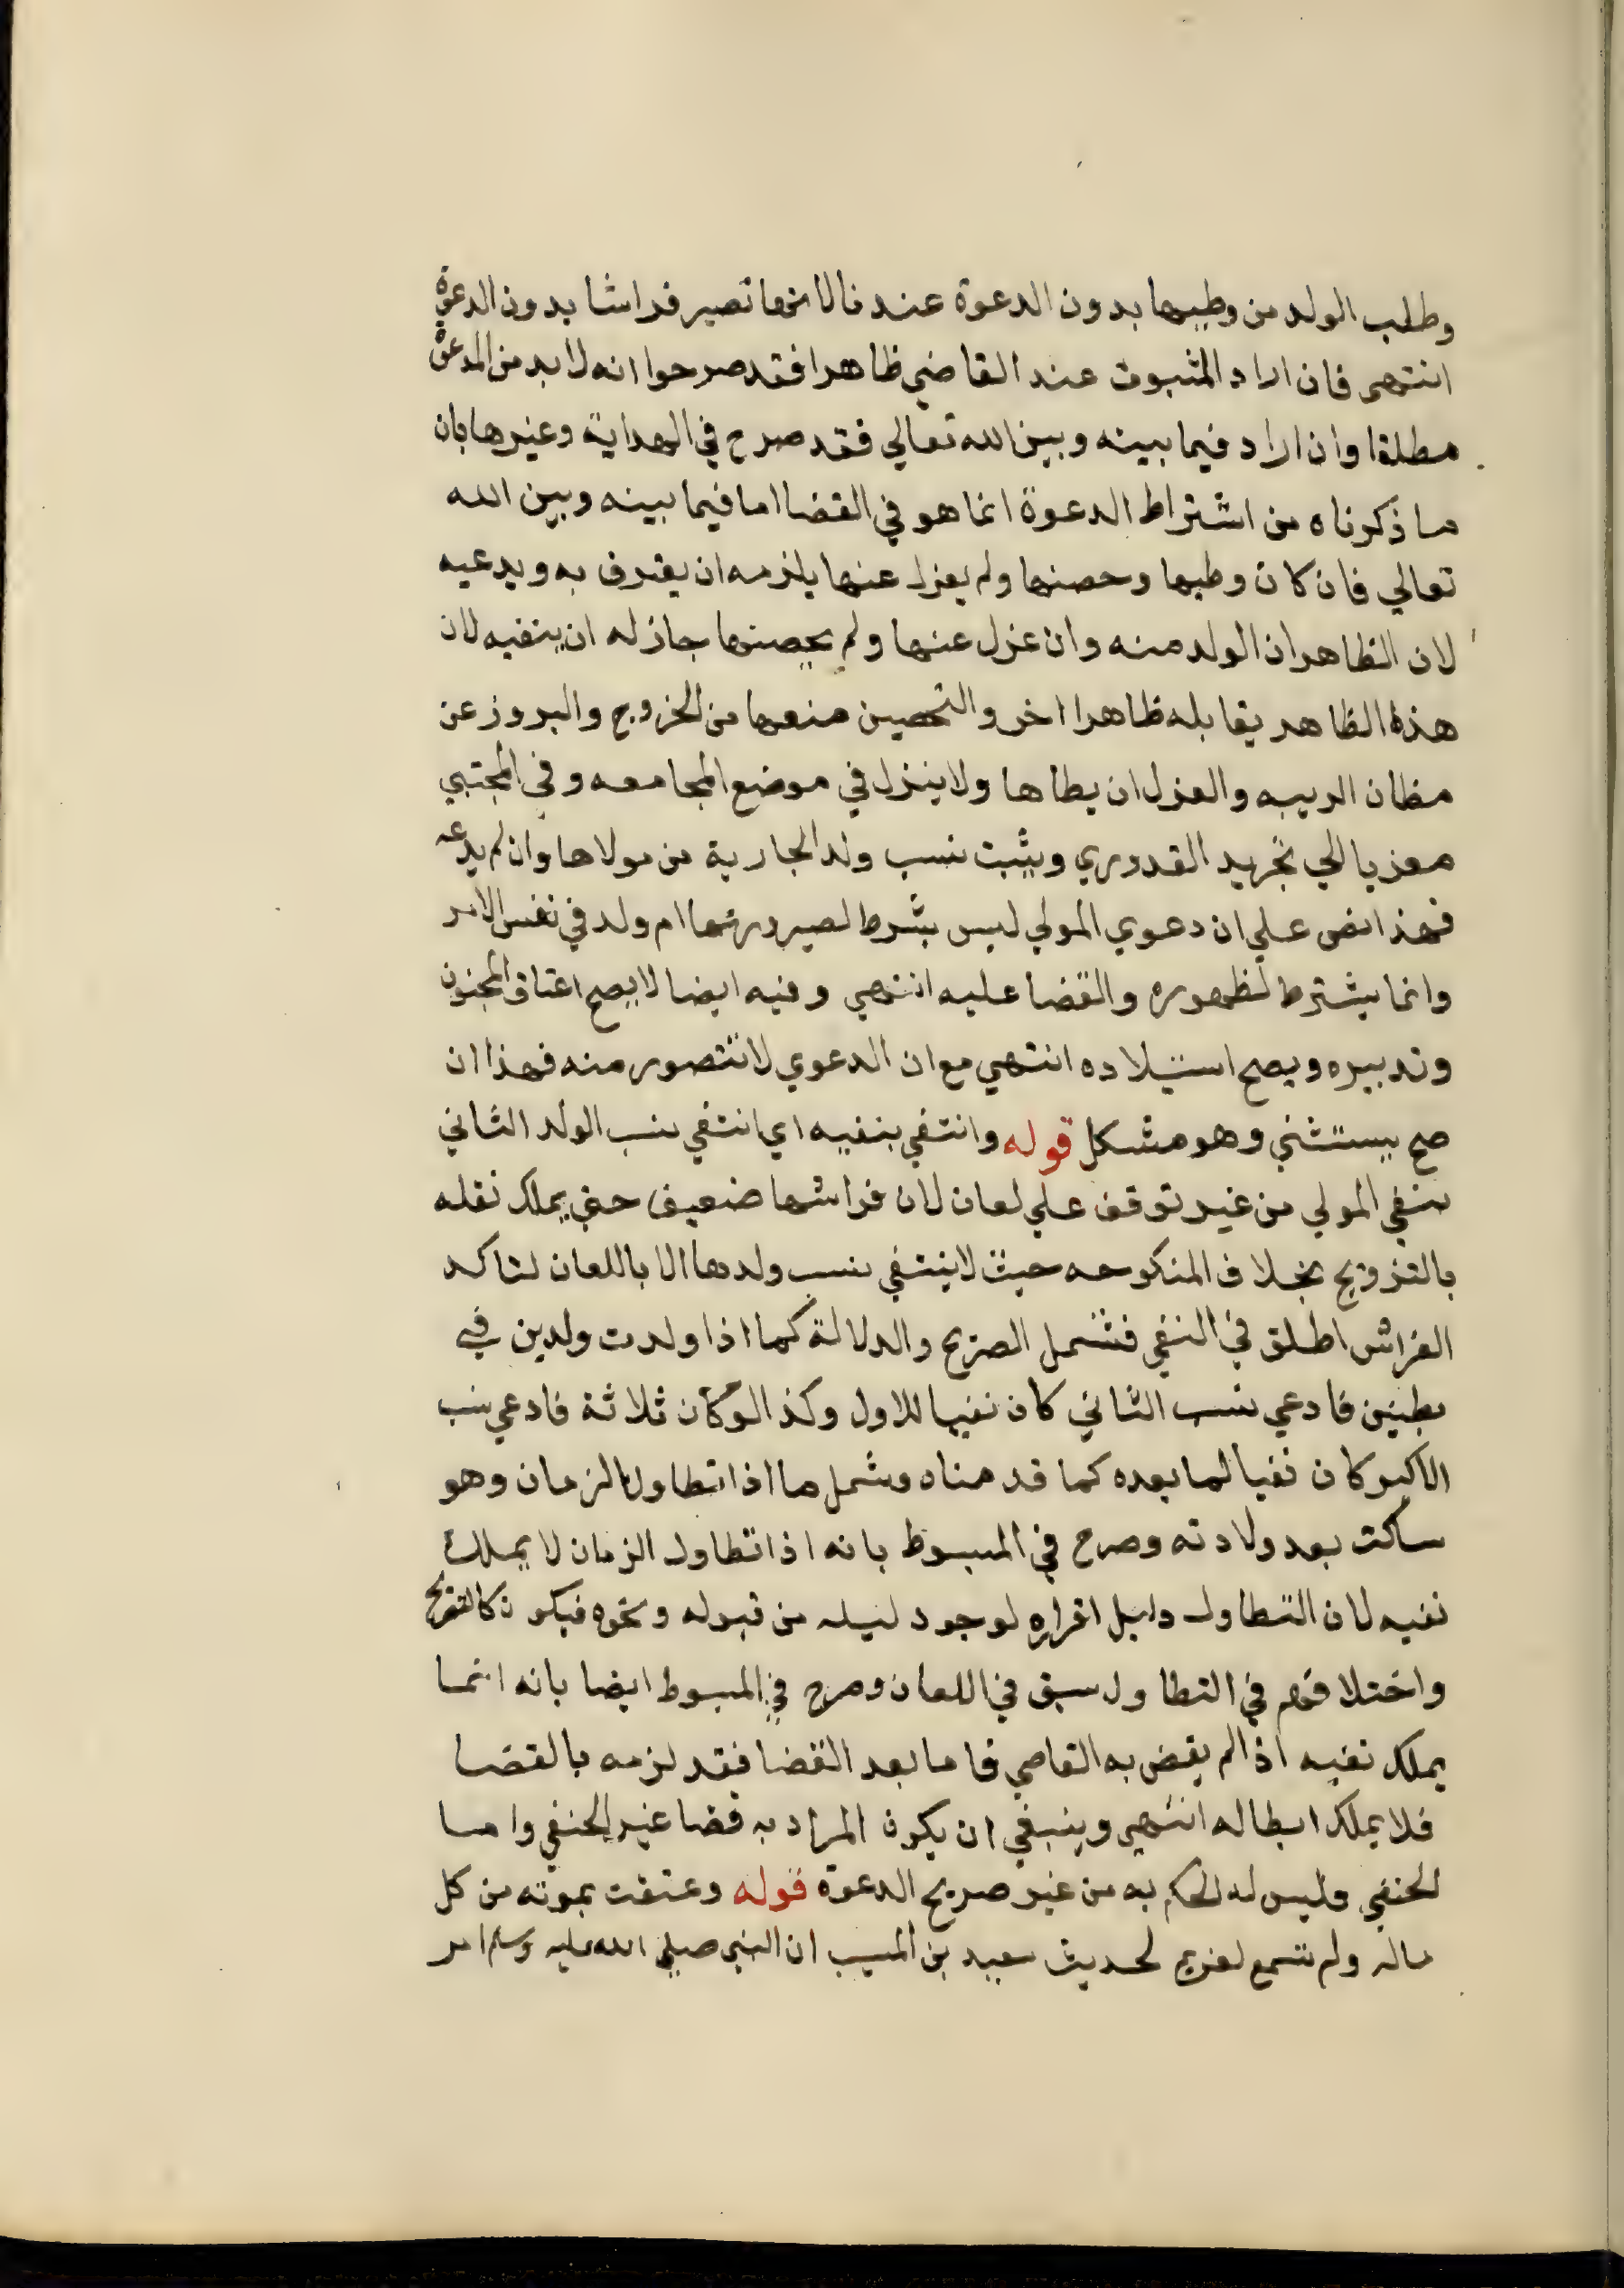 وطلب الولد من وطيها بدون الدعوة عندنا لا انها تصير فراشا بدون الدعوة
انتهي فان اراد الثبوت عند القاضي ظاهرا فقد صرحوا انه لا بد من الدعوة
مطلقا وان اراد فيما بينه وبين الله تعالي فقد صرح في الهداية وغيرها بان
ما ذكرناه من اشتراط الدعوة انما هو في القضا اما فيما بينه وبين الله
تعالي فان كان وطيها وحصنها ولم يعزل عنها يلزمه ان يعترف به ويدعيه
لان الظاهر ان الولد منه وان عزل عنها ولم يحصنها جاز له ان ينفيه لان
هذا الظاهر يقابله ظاهرا اخر والتحصين منعها من الخروج والبروز عن
مظان الريبه والعزل ان يطاها ولا ينزل في موضع المجامعه وفي المجتبي
معزيا الي تجريد القدوري ويثبت نسب ولد الجارية من مولاها وان لم يدعه
فهذا نص علي ان دعوي المولي ليس بشرط لصيرورتها ام ولد في نفس الامر
وانما يشترط لظهوره والقضا عليه انتهي وفيه ايضا لا يصح اعتاق المجنون
وتدبيره ويصح استيلاده انتهي مع ان الدعوي لا تتصور منه فهذا ان
صح يستثني وهو مشكل قوله وانتفي بنفيه اي انتفي نسب الولد الثاني
بنفي المولي من غير توقف علي لعان لان فراشها ضعيف حتي يملك نقله
بالتزويج بخلاف المنكوحه حيث لا ينتفي نسب ولدها الا باللعان لتاكد
الفراش اطلق في النفي فشمل الصريح والدلالة كما اذا ولدت ولدين في
بطنين فادعي نسب الثاني كان نفيا للاول وكذا لو كان ثلاثة فادعي نسب
الاكبر كان نفيا لما بعده كما قدمناه وشمل ما اذا تطاول الزمان وهو
ساكت بعد ولادته وصرح في المبسوط بانه اذا تطاول الزمان لا يملك
نفيه لان التطاول دليل اقراره لوجود ليله من قبوله ونحوه فيكون كالتصريح
واختلافهم في التطاول سبق في اللعان وصرح في المبسوط ايضا بانه انما
يملك نفيه اذا لم يقض به القاضي فاما بعد القضا فقد لزمه بالقضا
فلا يملك ابطاله انتهي وينبغي ان يكون المراد به قضا غير الحنفي واما
الحنفي فليس له الحكم به من غير صريح الدعوة قوله وعتقت بموته من كل
ماله ولم تسع لغريم لحديث سعيد بن المسيب ان النبي صلي الله عليه وسلم امر